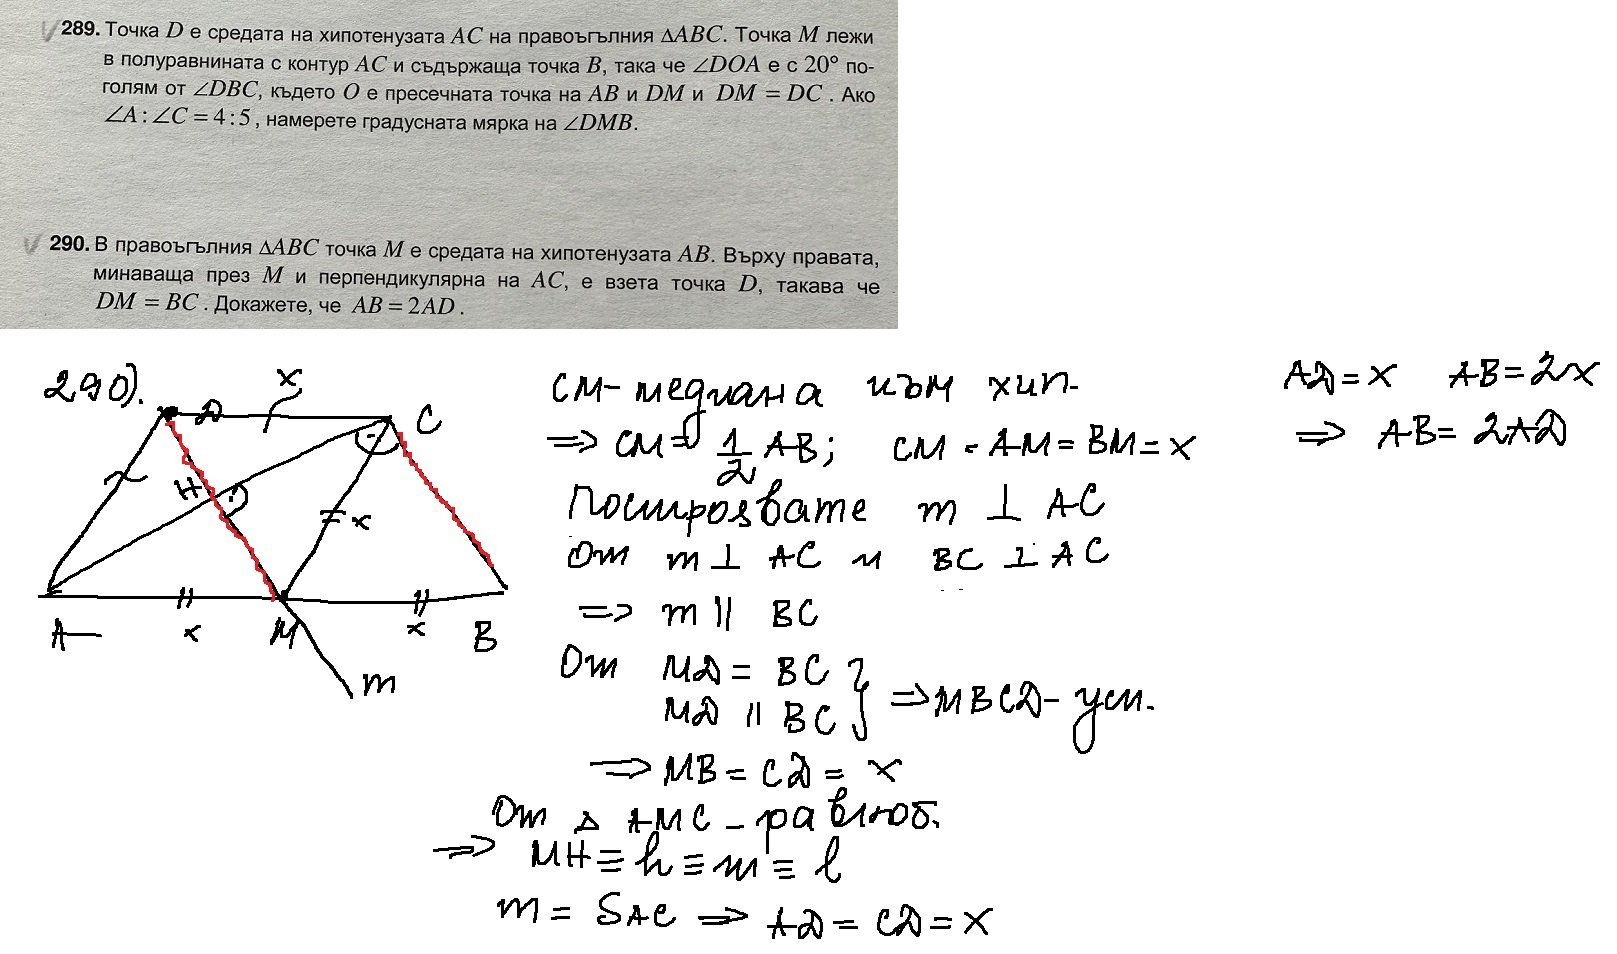 289. Точка D е средата на хипотенузата AC на правоъгълния ΔABC. Точка M лежи
в полуравнината с контур AC и съдържаща точка B, така че ∠DOA е с 20° по-
голям от ∠DBC, където O е пресечната точка на AB и DM и DM = DC. Ако
∠A : ∠C = 4 : 5, намерете градусната мярка на ∠DMB.
290. В правоъгълния ΔABC точка M е средата на хипотенузата AB. Върху правата,
минаваща през M и перпендикулярна на AC, е взета точка D, такава че
DM = BC. Докажете, че AB = 2AD.
290).
x
D
C
H
x
A
x
M
x
B
m
CM-медиана към хип.
=> CM = 1/2 AB; CM = AM = BM = x
Построявате m ⊥ AC
От m ⊥ AC и BC ⊥ AC
=> m || BC
От MD = BC
MD || BC } => MBCD - усп.
=> MB = CD = x
От Δ AMC - равноб.
=> MH ≡ h ≡ m ≡ l
m = SAC => AD = CD = x
AD = x AB = 2x
=> AB = 2AD